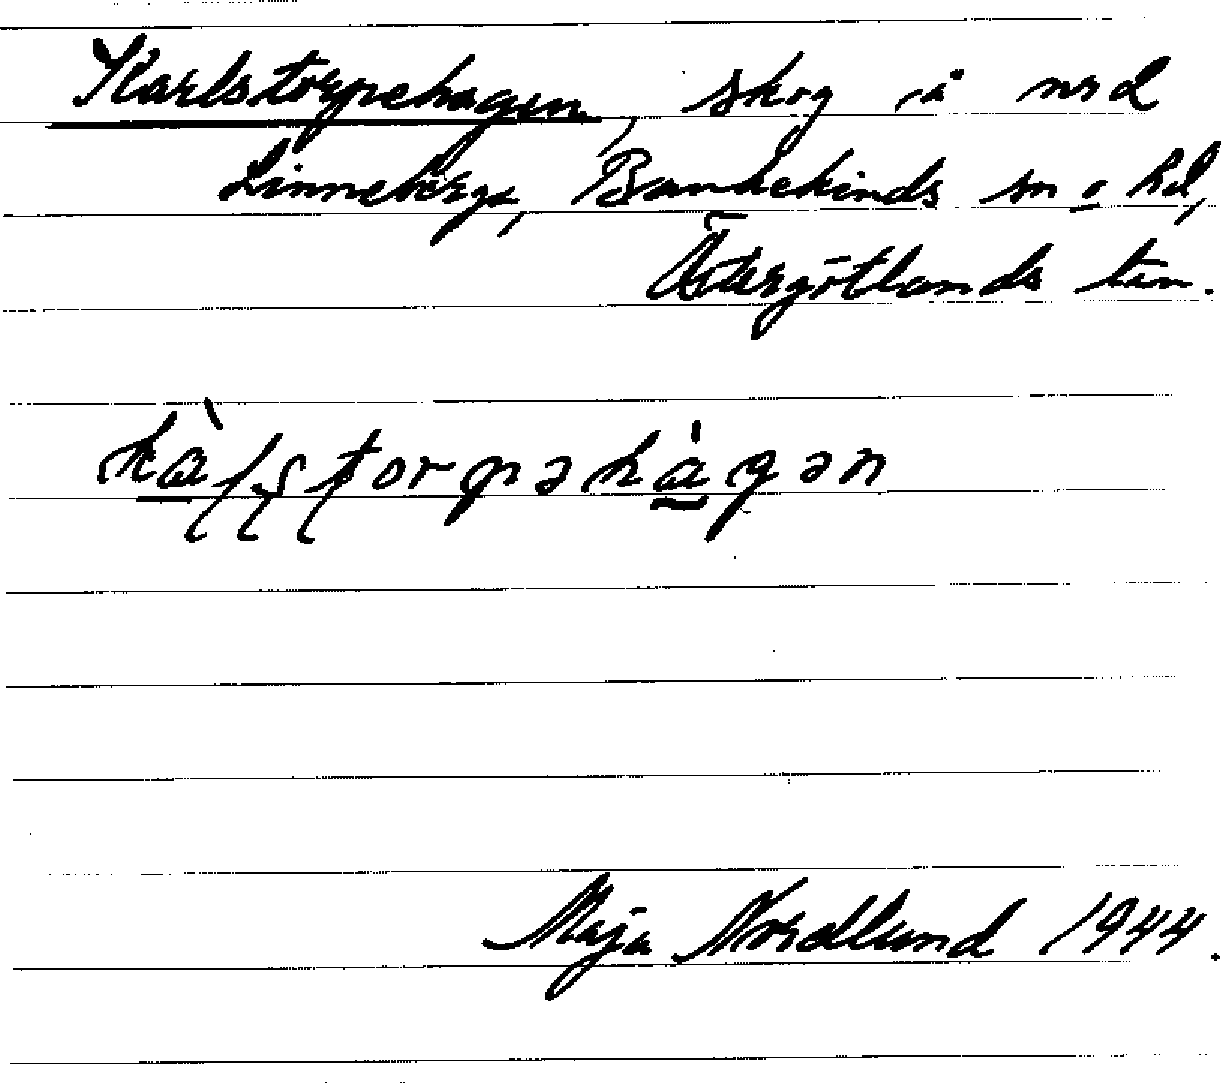 Karlstorpehagen, skog å nrd
Linneberga, Bankekinds sn o hd,
Östergötlands län.
Maja Nordlund 1944.